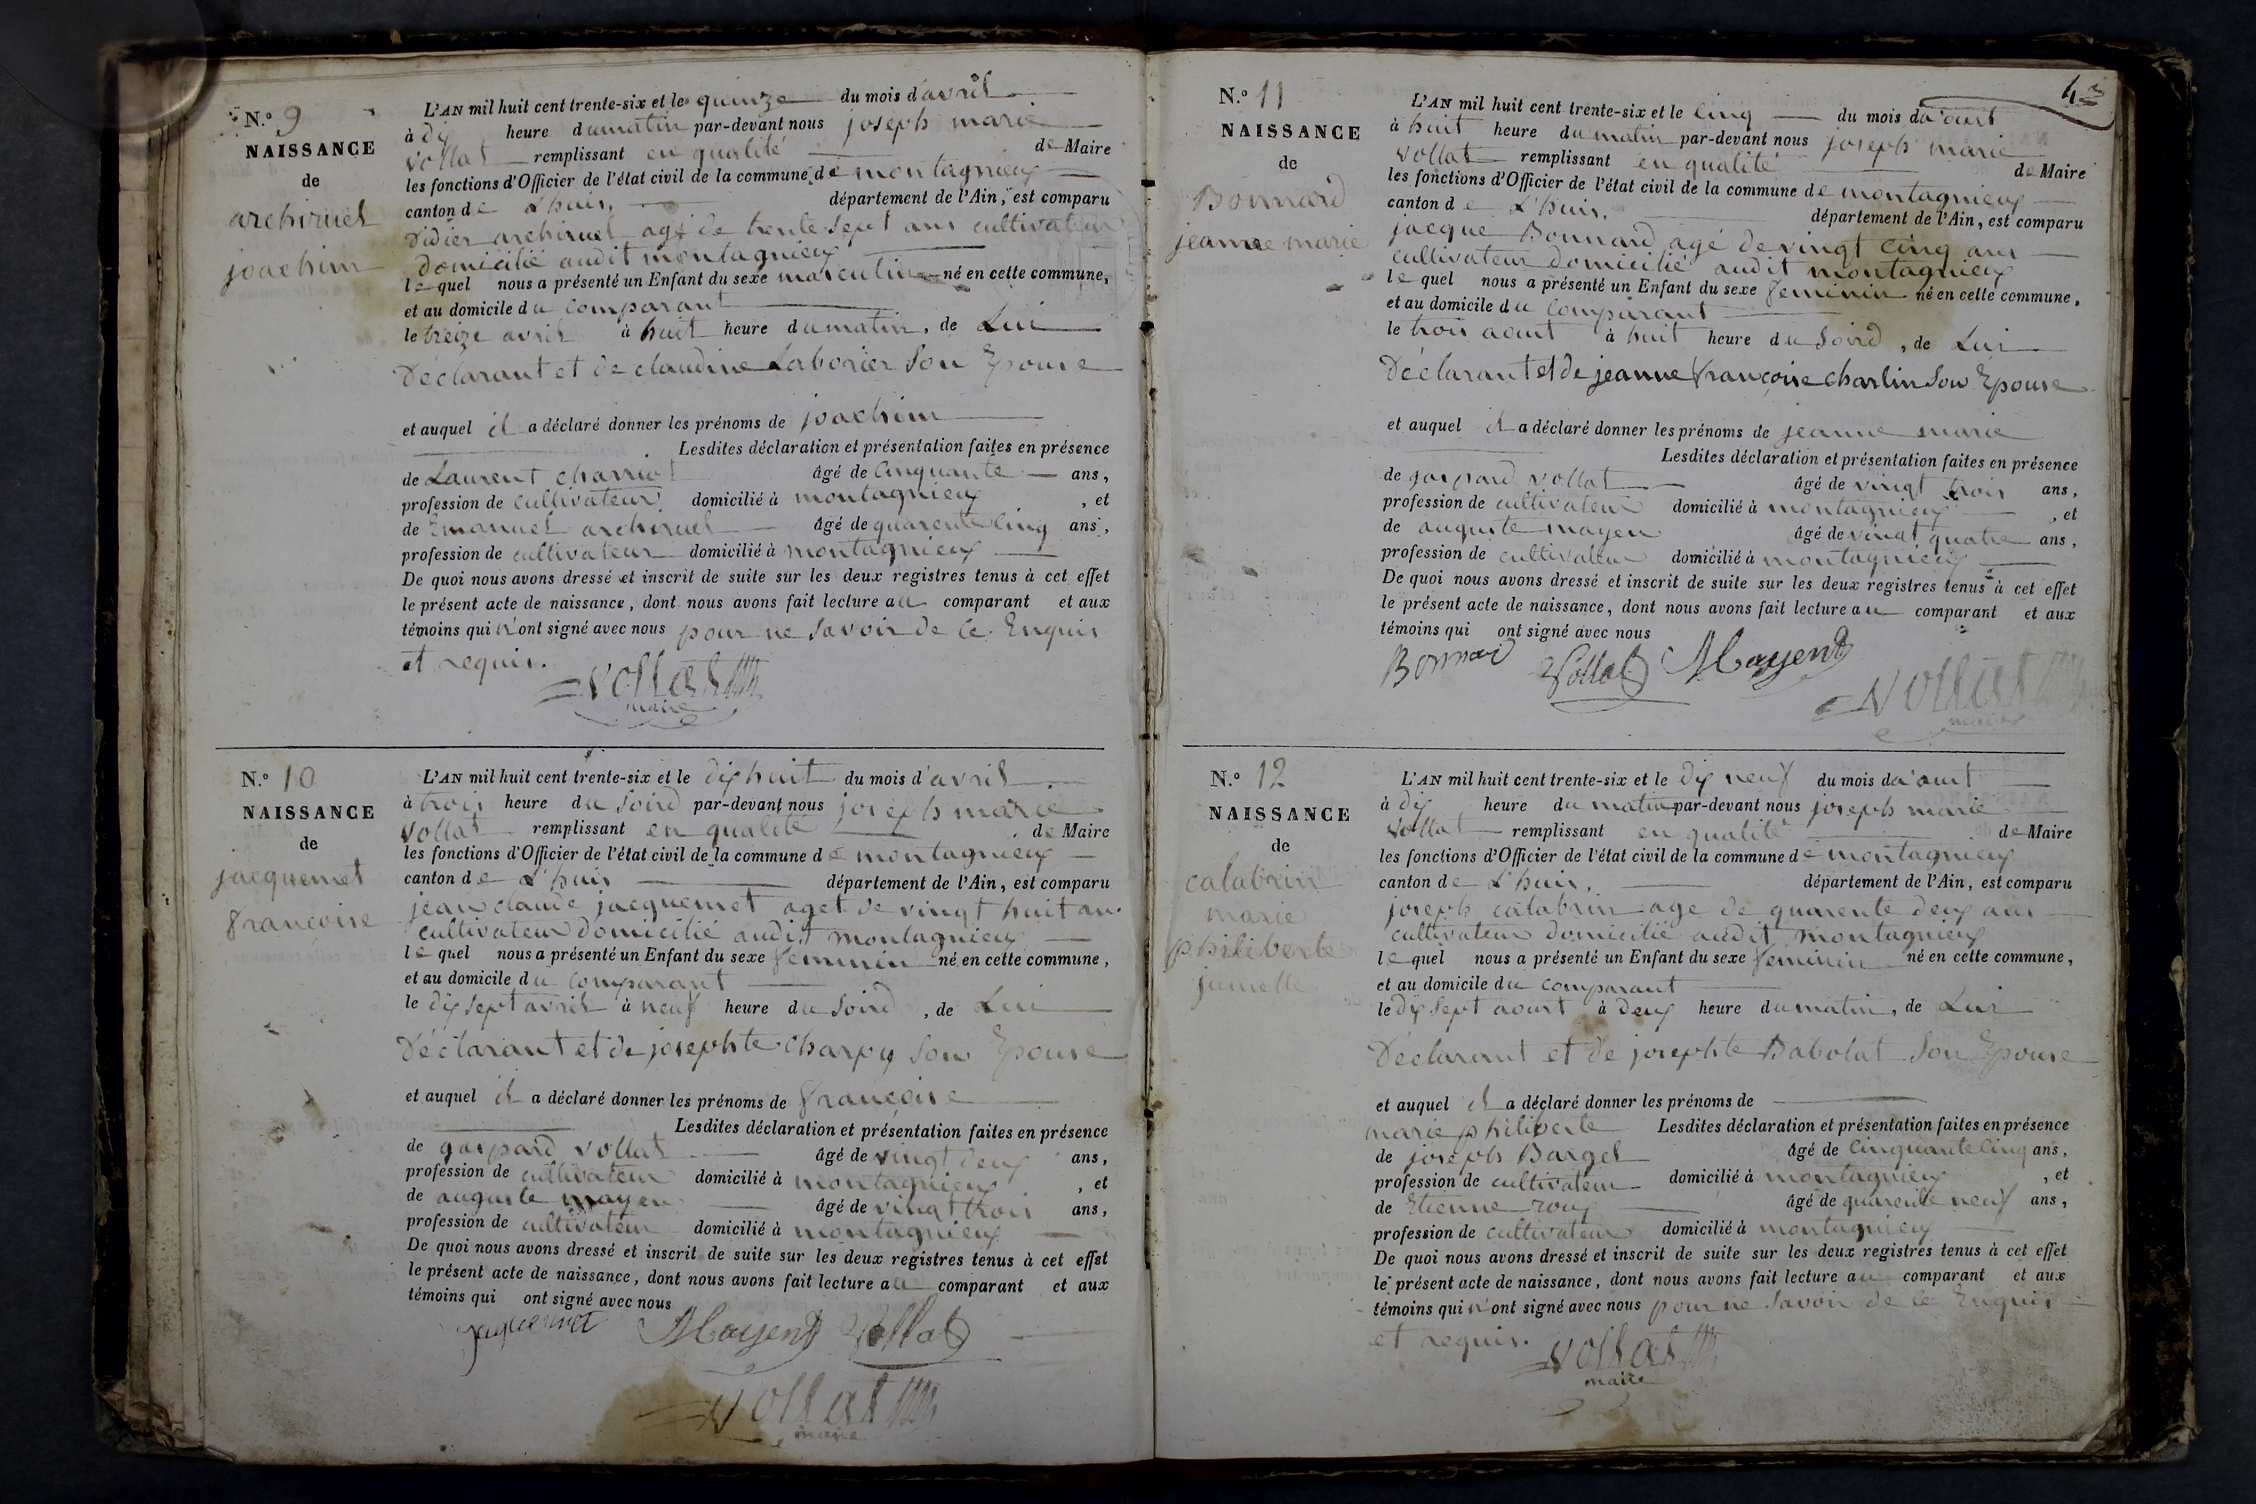 N.º 9
NAISSANCE
de
archiruel
joachim
L'AN mil huit cent trente-six et le quinze du mois d'avril
à dix heure du matin par-devant nous joseph marie
vollat remplissant en qualité de Maire
les fonctions d'Officier de l'état civil de la commune de montagnieux
canton de L'huis, département de l'Ain, est comparu
Didier archiruel agé de trente Sept ans cultivateur
domicilié audit montagnieux
le quel nous a présenté un Enfant du sexe masculin né en cette commune,
et au domicile du comparant
le treize avril à huit heure du matin, de Lui
Déclarant et de claudine Laborier Son Epouse
et auquel il a déclaré donner les prénoms de joachim
Lesdites déclaration et présentation faites en présence
de Laurent charriot âgé de Cinquante ans,
profession de cultivateur domicilié à montagnieux , et
de Emanuel archiruel âgé de quarente Cinq ans,
profession de cultivateur domicilié à montagnieux
De quoi nous avons dressé et inscrit de suite sur les deux registres tenus à cet effet
le présent acte de naissance, dont nous avons fait lecture au comparant et aux
témoins qui n'ont signé avec nous pour ne Savoir de Ce Enquis
et requis.
vollat
maire
N.º 10
NAISSANCE
de
jacquemet
francoise
L'AN mil huit cent trente-six et le dix huit du mois d'avril
à trois heure du Soird par-devant nous joseph marie
vollat remplissant en qualité de Maire
les fonctions d'Officier de l'état civil de la commune de montagnieux
canton de L'huis département de l'Ain, est comparu
jean claude jacquemet aget de vingt huit an
cultivateur domicilié audit montagnieux
le quel nous a présenté un Enfant du sexe feminin né en cette commune,
et au domicile du comparant
le dix sept avril à neuf heure du Soird , de Lui
Déclarant et de josephte Charpy Son Epouse
et auquel il a déclaré donner les prénoms de françoise
Lesdites déclaration et présentation faites en présence
de gaspard vollat âgé de vingt deux ans,
profession de cultivateur domicilié à montagnieux , et
de auguste mayen âgé de vingt trois ans,
profession de cultivateur domicilié à montagnieux
De quoi nous avons dressé et inscrit de suite sur les deux registres tenus à cet effet
le présent acte de naissance, dont nous avons fait lecture au comparant et aux
témoins qui ont signé avec nous
jaquemet AMayend Vollat
vollat
maire
4
N.º 11
NAISSANCE
de
Bonnard
jeanne marie
L'AN mil huit cent trente-six et le Cinq du mois d'aout
à huit heure du matin par-devant nous joseph marie
vollat remplissant en qualité de Maire
les fonctions d'Officier de l'état civil de la commune de montagnieux
canton de L'huis, département de l'Ain, est comparu
jacque Bonnard agé de vingt cinq ans
cultivateur domicilié audit montagnieux
le quel nous a présenté un Enfant du sexe feminin né en cette commune,
et au domicile du comparant
le trois aout à huit heure du Soird , de Lui
Déclarant et de jeanne françoise charlin Son Epouse
et auquel il a déclaré donner les prénoms de jeanne marie
Lesdites déclaration et présentation faites en présence
de gaspard vollat âgé de vingt trois ans,
profession de cultivateur domicilié à montagnieux , et
de auguste mayen âgé de vingt quatre ans,
profession de cultivateur domicilié à montagnieux
De quoi nous avons dressé et inscrit de suite sur les deux registres tenus à cet effet
le présent acte de naissance, dont nous avons fait lecture au comparant et aux
témoins qui ont signé avec nous
Bonnard Vollat AMayend
vollat
maire
N.º 12
NAISSANCE
de
calabrin
marie
philiberte
jumelle
L'AN mil huit cent trente-six et le dix neuf du mois d'aout
à dix heure du matin par-devant nous joseph marie
vollat remplissant en qualité de Maire
les fonctions d'Officier de l'état civil de la commune de montagnieux
canton de L'huis, département de l'Ain, est comparu
joseph calabrin age de quarente deux ans
cultivateur domicilié audit montagnieux
le quel nous a présenté un Enfant du sexe feminin né en cette commune,
et au domicile du comparant
le dix Sept aoust à deux heure du matin, de Lui
Déclarant et de josephte Babolat Son Epouse
et auquel il a déclaré donner les prénoms de
marie philiberte Lesdites déclaration et présentation faites en présence
de joseph Barget âgé de Cinquante Cinq ans,
profession de cultivateur domicilié à montagnieux , et
de Etienne roux âgé de quarente neuf ans,
profession de cultivateur domicilié à montagnieux
De quoi nous avons dressé et inscrit de suite sur les deux registres tenus à cet effet
le présent acte de naissance, dont nous avons fait lecture au comparant et aux
témoins qui n'ont signé avec nous pour ne Savoir de Cé Enquis
et requis.
vollat
maire